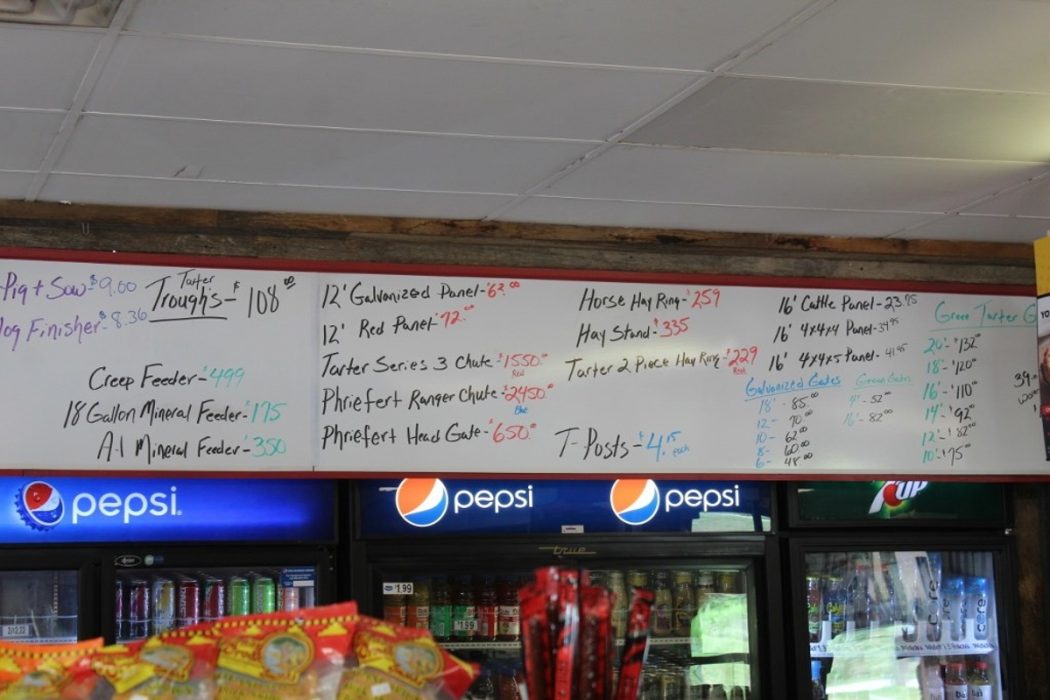 Pig + Sow - $9.00
Hog Finisher - $8.36
Tarter
Troughs - $108.00
Creep Feeder - $499
18 Gallon Mineral Feeder - $175
A-1 Mineral Feeder - $350
12' Galvanized Panel - $62.00
12' Red Panel $72.00
Tarter Series 3 Chute - $1550.00
Red
Phriefert Ranger Chute - $2450.00
Blue
Phriefert Head Gate - $650.00
Horse Hay Ring - $259
Hay Stand - $335
Tarter 2 Piece Hay Ring - $229
Red
T-Posts - $4.15
each
16' Cattle Panel - 23.95
16' 4x4x4 Panel - 34.95
16' 4x4x5 Panel - 41.95
Galvanized Gates
18' - 85.00
12 - 70.00
10 - 62.00
8 - 60.00
6 - 48.00
Green Gates
4' - 52.00
16' - 82.00
Green Tarter G
20' - $132.00
18' - $120.00
16' - $110.00
14' - $92.00
12' - $82.00
10' - $75.00
39.
pepsi
pepsi
pepsi
7UP
true
$1.99
$1.99
core
core